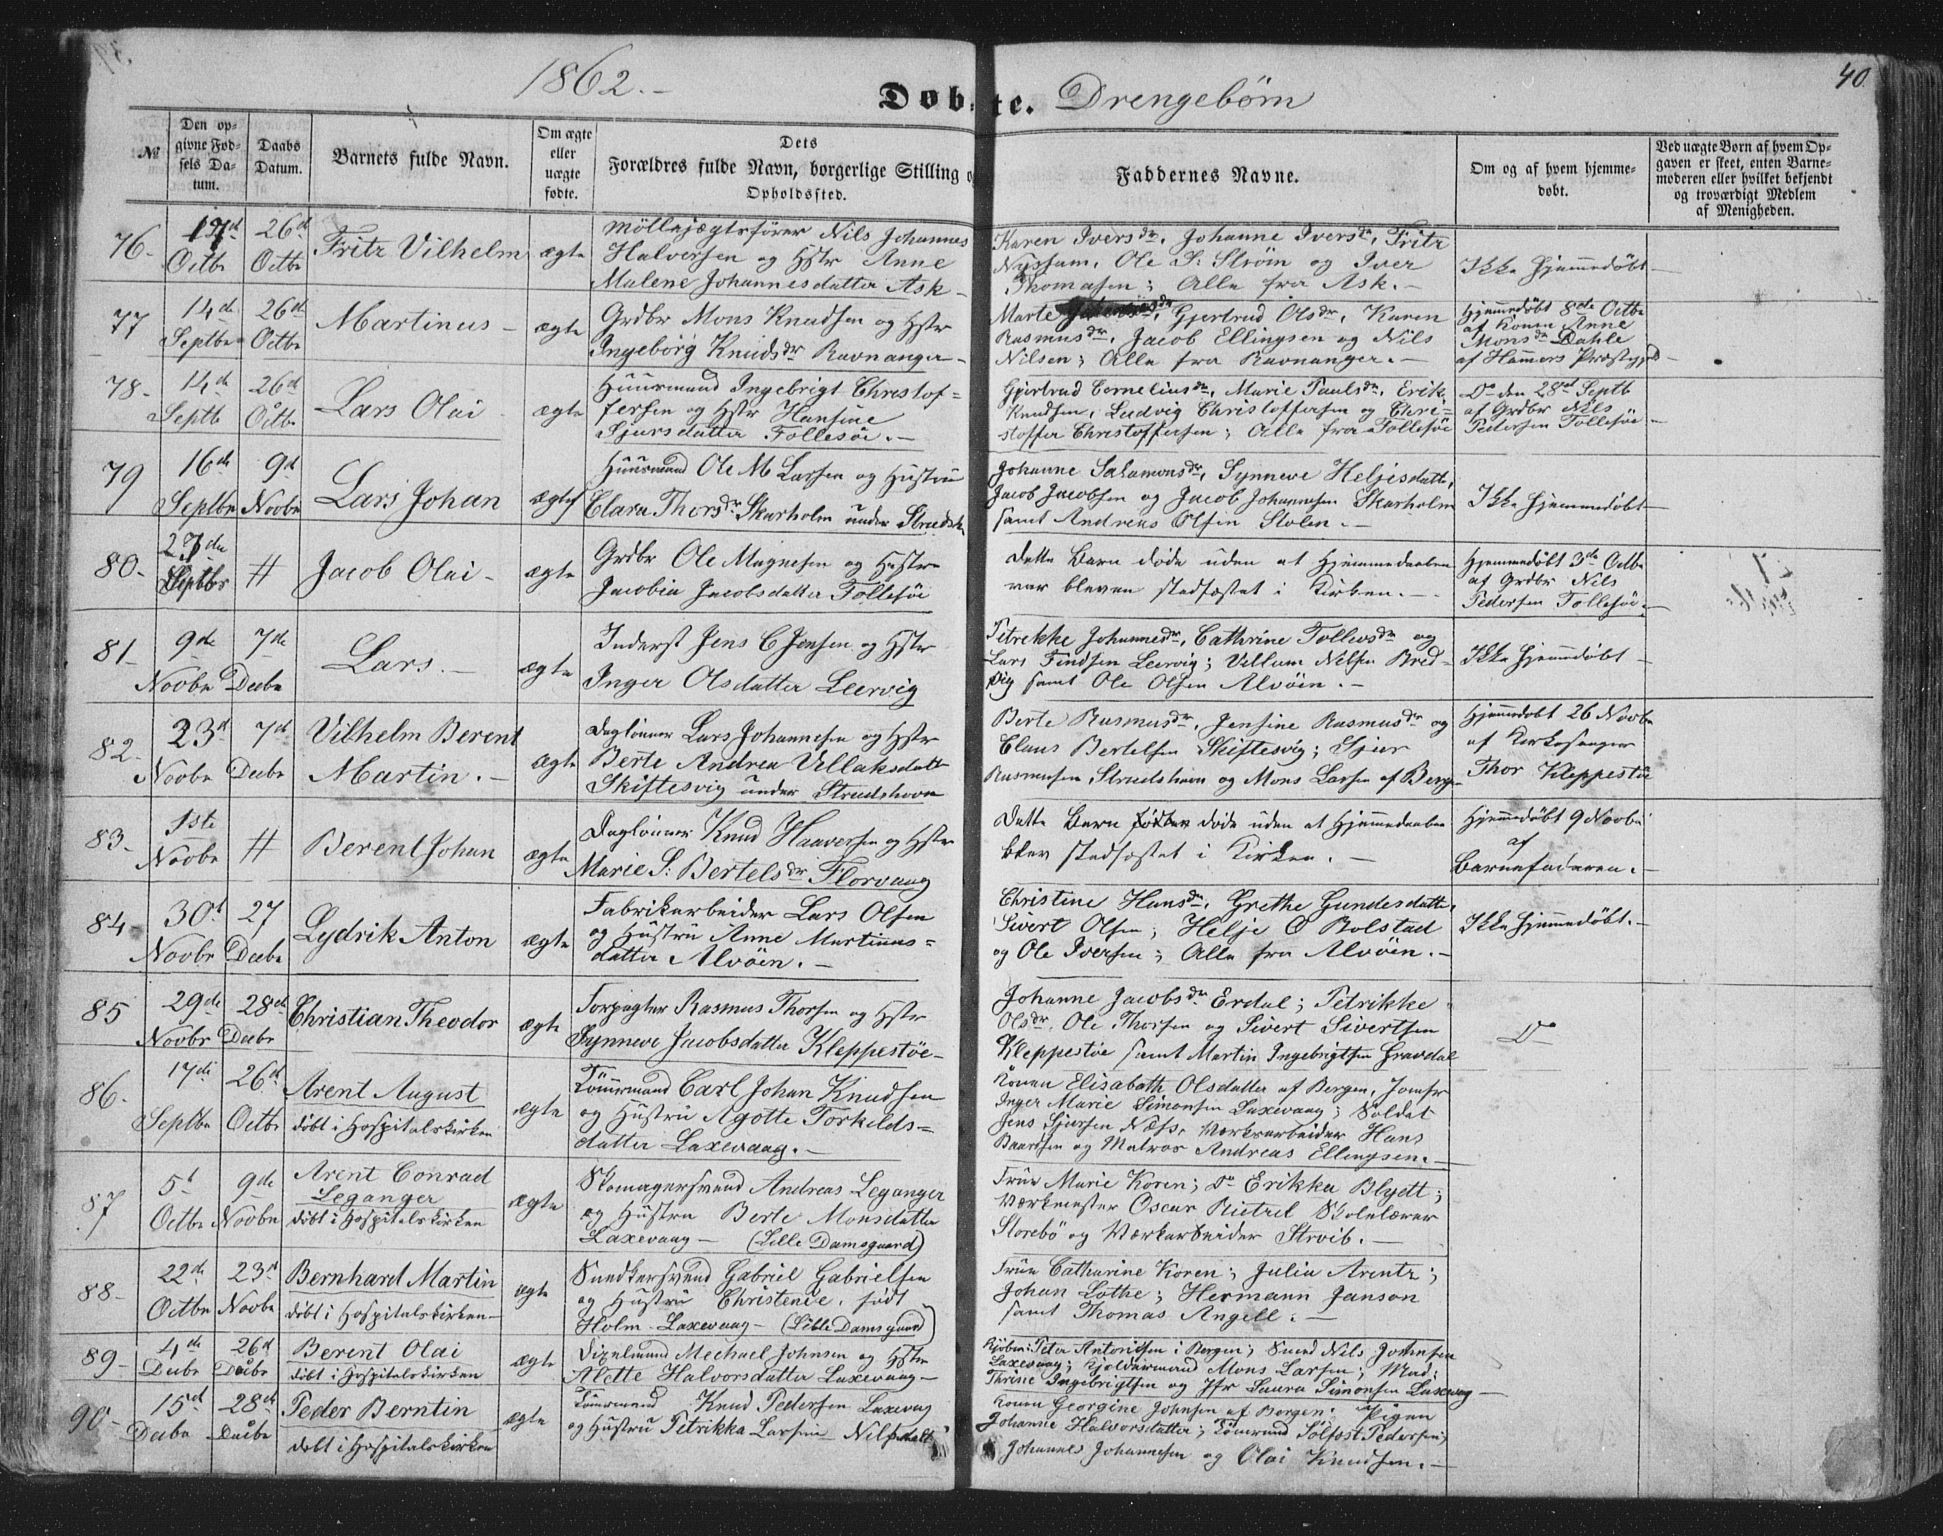 1862.-
40
Døbte. Drengebørn
№
Den op-
givne Fød-
sels Da-
tum.
Daabs
Datum.
Barnets fulde Navn.
Om ægte
eller
uægte
fødte.
Dets
Forældres fulde Navn, borgerlige Stilling o
Opholdssted.
Faddernes Navne.
Om og af hvem hjemme-
døbt.
Ved uægte Børn af hvem Op-
gaven er skeet, enten Barne-
moderen eller hvilket bekjendt
og troværdigt Medlem
af Menigheden.
76-
17d
Octbr
26d
Octbr
Fritz Vilhelm
ægte
Möllejægtsfører Nils Johannes
Halversen og Hstr Anne
Malene Johannesdatter Ask-
Karen Iversdr, Johanne Iversdr, Fritz
Nyssum, Ole S: Strøm og Iver
Thomasen; Alle fra Ask.-
Ikke Hjemmedøbt-
77
14de
Septbr
26d
Octbr
Martinus-
ægte
Grdbr Mons Knudsen og Hstr
Ingeborg Knudsdr Ravnanger-
Marte Gjertrud Olsdr, Karen
Rasmusdr, Jacob Ellingsen og Nils
Nilsen; Alle fra Ravnanger.-
Hjemmedøbt 8de Octbr
af Konen Anne
Monsdr Dahle
af Hammers Præstegjd-
78-
14de
Septb
26d
Octbr
Lars Olai
ægte
Huusmand Ingebrigt Christof=
fersen og Hstr Hansine
Sjursdatter Follesöe.-
Gjertrud Corneliusdr, Marie Paulsdr, Erik
Knudsen, Ludvig Christoffersen og Chri=
stoffer Christoffersen; Alle fra Follesöe
Do den 28de Septb
af Grdbr Nils
Pedersen Follesöe-
79
16de
Septbr
9d
Novbr
Lars Johan
ægte
Huusmand Ole M Larsen og Hustru
Clara Thorsdr Skarholm under
Johanne Salamonsdr, Synneve Heljesdattr,
Jacob Jacobsen og Jacob Johannesen Skarholm
samt Andreas Olsen Stolen.-
Ikke Hjemmedøbt-
80-
de
Septbr
#
Jacob Olai-
ægte
Grdbr Ole Magnesen og Hustru
Jacobia Jacobsdatter Follesöe
Dette Barn døde uden at Hjemmedaaben
var bleven stadfæstet i Kirken.-
Hjemmedøbt 3de Octbr
af Grdbr Nils
Pedersen Follesöe.-
81-
9de
Novbr
7de
Decbr
Lars.-
ægte
Inderst Jens C Jensen og Hstr
Inger Olsdatter Leervig
Petrekke Johannedr, Cathrine Tollevsdr og
Lars Findsen Leervig; Villum Nilsen Bred-
vig samt Ole Olsen Alvöen.-
Ikke Hjemmedøbt-
82-
23d
Novbr
7de
Decbr
Vilhelm Berent
Martin.-
ægte
Daglönner Lars Johannesen og Hstr
Berte Andrea Villaksdatt
Skiftesvig under Strudshavn
Berte Rasmusdr, Jensine Rasmusdr og
Claus Bertelsen Skiftesvig; Sjur
Rasmusen Strudshavn og Mons Larsen af Berge
Hjemmedøbt 26 Novbr
af Kirkesanger
Thor Kleppestöe
83-
1ste
Novbr
#
Berent Johan
ægte
Daglönner Knud Haaversen og Hstr
Marie S: Bertelsdr Florvaag
Dette Barn døde uden at Hjemmedaaben
blev stadfæstet i Kirken.-
Hjemmedøbt 9 Novbr
af
Barnefaderen.-
84-
30d
Novbr
27
Decbr
Lydrik Anton
ægte
Fabrikarbeider Lars Olsen
og Hustru Anne Martinus=
datter Alvöen.-
Christine Hansdr, Grethe Gundesdattr,
Sivert Olsen; Helje O Bolstad
og Ole Iversen; Alle fra Alvöen.-
Ikke Hjemmedøbt.-
85
29de
Novbr
28de
Decbr
Christian Theodor
ægte
Forpagter Rasmus Thorsen og Hstr
Synneve Jacobsdatter Kleppestöe-
Johanne Jacobsdr Erdal; Petrikke
Olsdr, Ole Thorsen og Sivert Sivertsen
Kleppestöe samt Martin Ingebrigtsen Gravdal
Do
86-
17de
Septbr
26d
Octbr
Arent August
døbt i Hospitalskirken
ægte
Tömmermand Carl Johan Knudsen
og Hustru Agotte Torkilds=
datter Laxevaag.-
Konen Elisabeth Olsdatter af Bergen, Jomfr
Inger Marie Simonsen Laxevaag; Soldat
Jens Sjursen Næss, Værkarbeider Hans
Baardsen og Matros Andreas Ellingsen.-
87
5d
Octbr
9de
Novbr
Arent Conrad
Leganger
døbt i Hospitalskirken
ægte
Skomagersvend Andreas Leganger
og Hustru Berte Monsdatter
Laxevaag- (Lille Damsgaard)
Frue Marie Koren; Do Erikka Blydt;
Værkmester Oscar Pietzel Skolelærer
Storebö og Værkarbeider Stroib.-
88-
22de
Octbr
23d
Novbr
Bernhard Martin
døbt i Hospitalskirken-
ægte
Snedkersvend Gabriel Gabrielsen
og Hustru Christence, født
Holm- Laxevaag- (Lille Damsgaard)
Frue Catharine Koren; Julia Arentz;
Johan Lothe; Hermann Janson
samt Thomas Angell.-
89-
4de
Decbr
26d
Decbr
Berent Olai
døbt i Hospitalskirken
ægte
Sizelmand Mechael Johnsen og Hstr
Alette Halvorsdatter Laxevaag-
Kjøbm: Peter Antonisen i Bergen; Svend Nils Johnsen
Laxevaag; Mons Larsen, Mad:
Thrine Ingebrigtsen og Jfr Laura Simonsen Laxevaag-
90-
15d
Decbr
28de
Decbr
Peder Berntin
døbt i Hospitalskirken
ægte
Tömmermand Knud Pedersen Laxevaag
og Hustru Petrikka Larsine Nilsdatt
Konen Georgine Johnsen af Bergen; Pigen
Johanne Halvorsdatter; Tömmermand Tolfost Pedersen;
Johannes Johannesen og Olai Knudsen.-